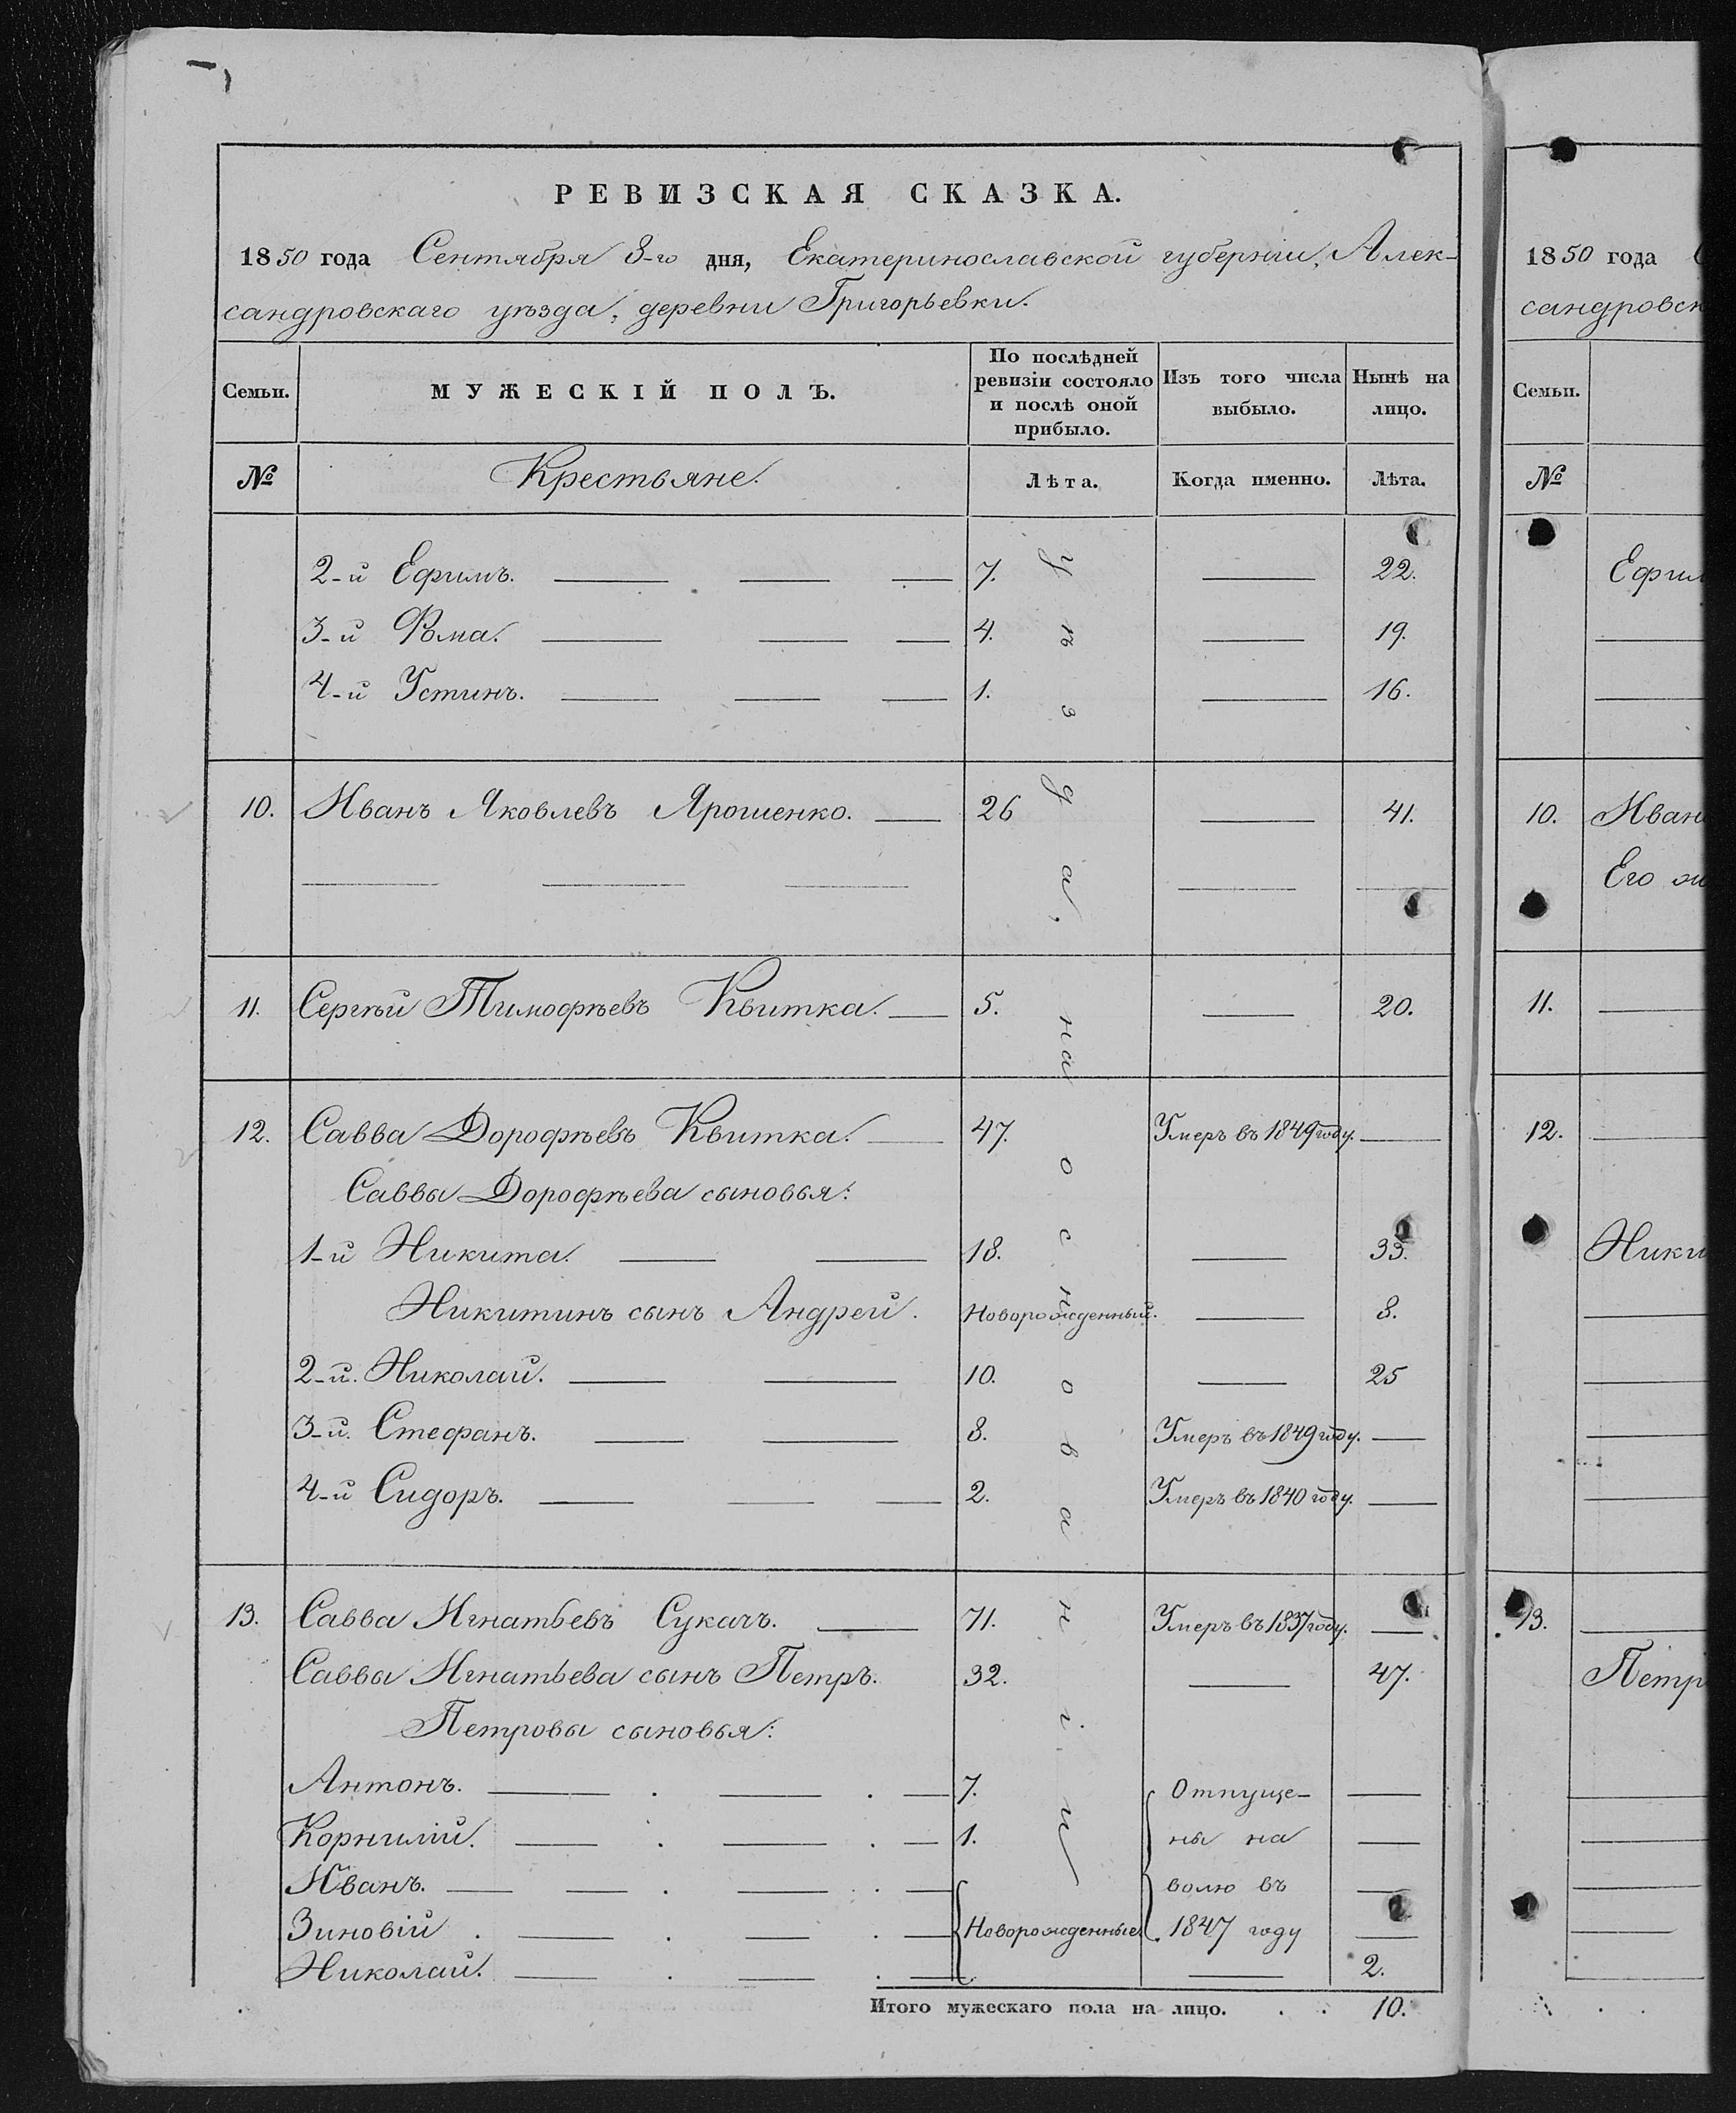 РЕВИЗСКАЯ СКАЗКА.
1850 года Сентября 8-го дня, Екатеринославской губерніи, Алек-
сандровскаго уѣзда, деревни Григорьевки.
Семьи. МУЖЕСКІЙ ПОЛЪ. По послѣдней ревизіи состояло и послѣ оной прибыло. Изъ того числа выбыло. Нынѣ на лицо.
№ Крестьяне. Лѣта. Когда именно. Лѣта.
2-й Ефимъ. 7. 22.
3-й Фома. 4. 19.
4-й Устинъ. 1. 16.
10. Иванъ Яковлевъ Ярошенко. 26 41.
11. Сергѣй Тимофѣевъ Квитка. 5. 20.
12. Савва Дорофѣевъ Квитка. 47. Умеръ въ 1849 году.
Саввы Дорофѣева сыновья:
1-й Никита. 18. 33.
Никитинъ сынъ Андрей. Новорожденный. 8.
2-й. Николай. 10. 25
3-й. Стефанъ. 8. Умеръ въ 1849 году.
4-й Сидоръ. 2. Умеръ въ 1840 году.
13. Савва Игнатьевъ Сукачъ. 71. Умеръ въ 1837 году.
Саввы Игнатьева сынъ Петръ. 32. 47.
Петровы сыновья:
Антонъ. 7. Отпуще-
Корнилій. 1. ны на
Иванъ. волю въ
Зиновій. Новорожденные. 1847 году
Николай. 2.
Итого мужескаго пола на лицо. 10.
уѣзда, на основаніи
1850 года
сандровск
Семьи.
№
Ефим
10. Иван
Его ж
11.
12.
Ники
13.
Петр